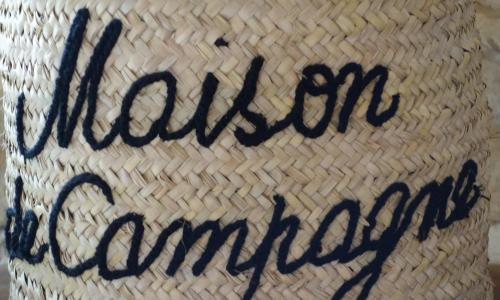 Maison
de Campagne